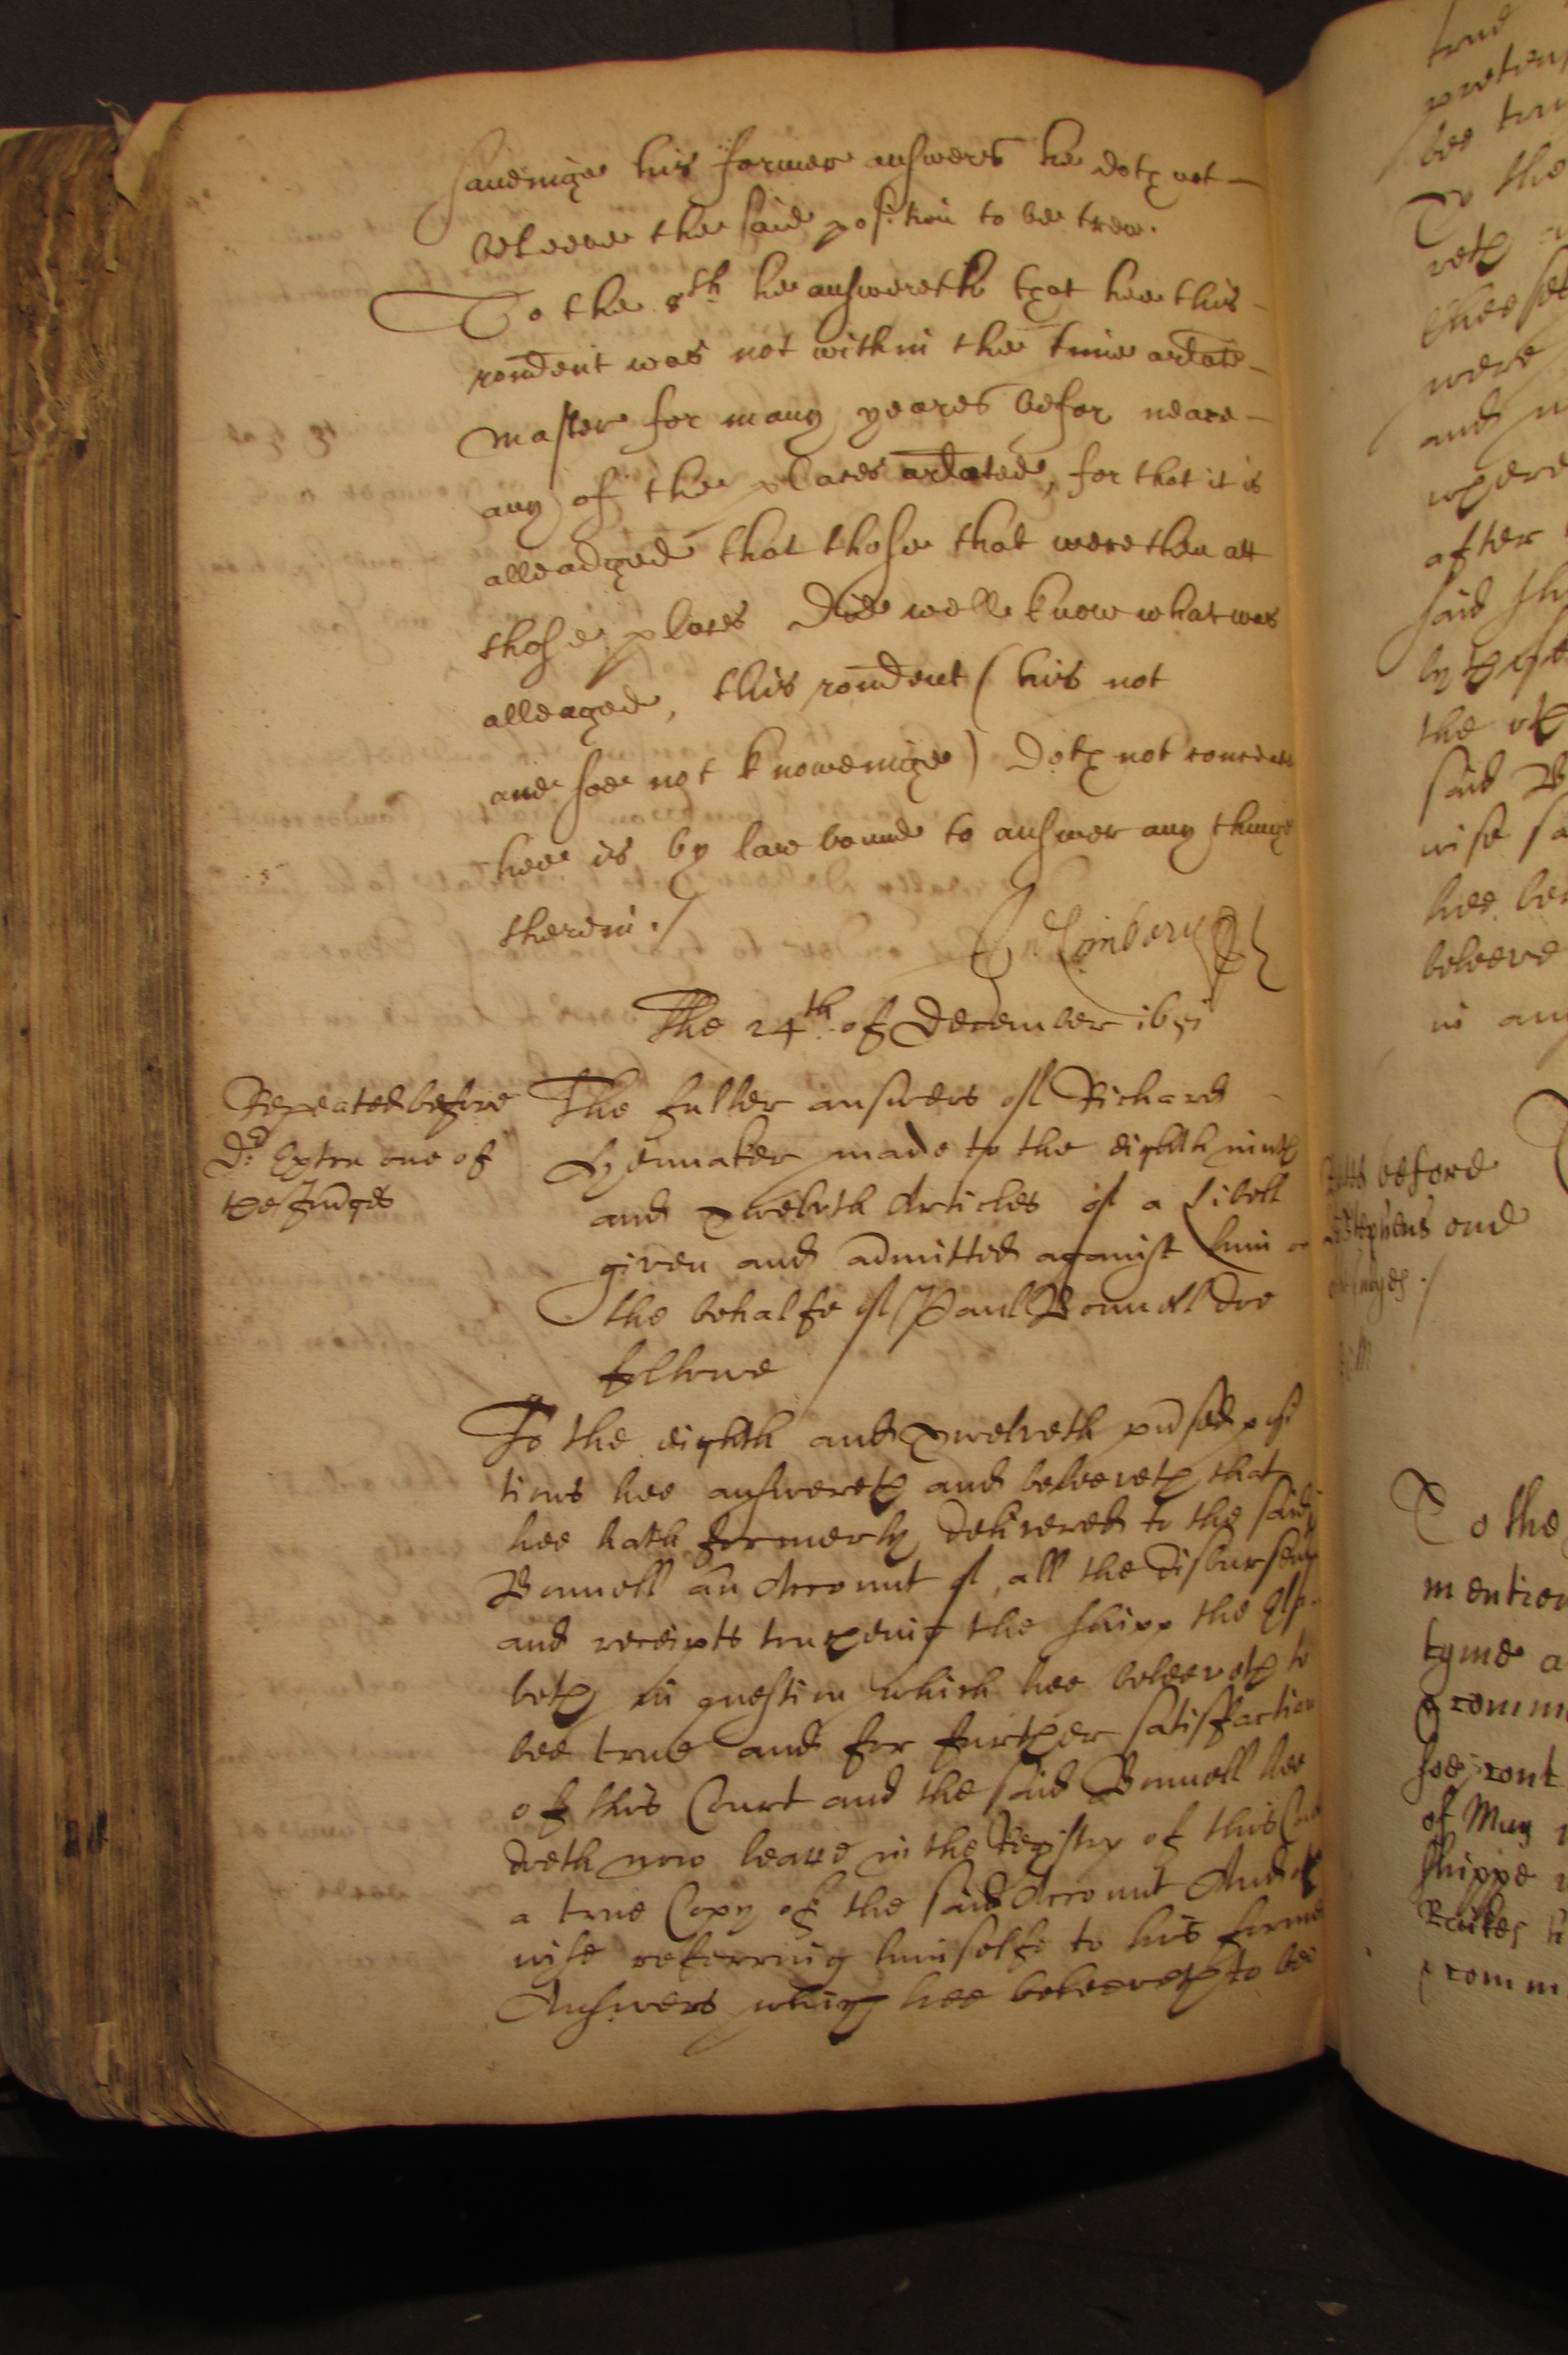 saveinge his former answers he doth not
beleeve the said position to be trew.
To the 8th he answereth that hee this
rondent was not within the time arlate
master for many yeares befor neare
any of the places arlated, for that it is
alleadged that those that were then att
those places did well know what was
alleaged, this rondent (his not
and soe not knoweinge) doth not conceave
hee is by law bound to answer any thinge
therein ./
The 24th of December 1651
Repeated before
Dr Exton one of
the Judges
The fuller answers of Richard
made to the eighth ninth
and twelveth Articles of a Libell
given and admitted against him on
the behalfe of Paul Bonnell doe
followe
To the eighth and twelveth posi
tions hee answereth and beleeveth that
hee hath formerly delivered to the said
Bonnell an Account of all the disbursemts
and receipts tuchenig the shipp the Elsa
beth in question which hee beleeveth to
bee true and for further satisfaction
of this Court and the said Bonnell hee
doeth now leave in the Registry of this Court
a true Copy of the said Account And
wise referring himselfe to his former
Answers which hee beleeveth to be
true
before
Stephens one
of Judges ./
To the
were
and
where
after
said
the
said B
wise
hee
beleeve
in any
To the
mention
tyme a
of May
shippe